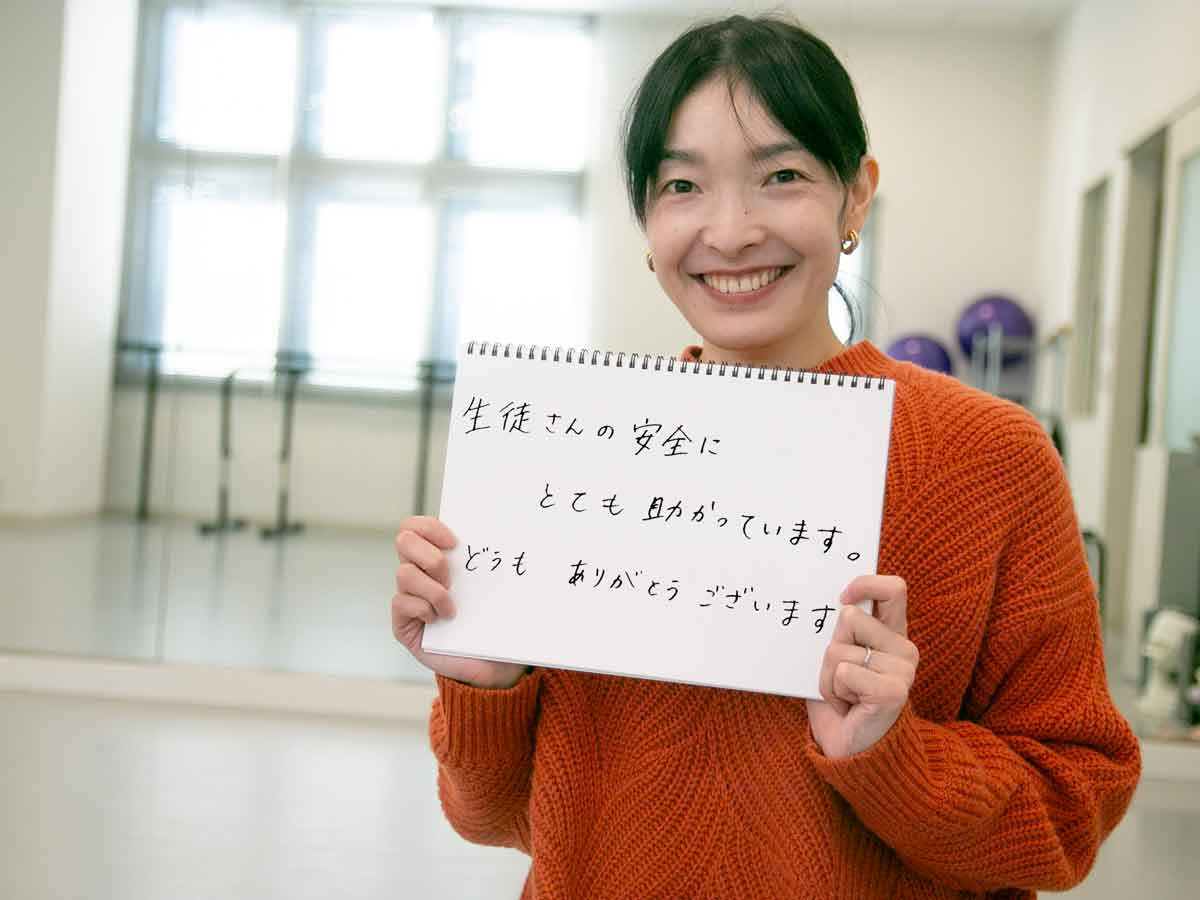 生徒さんの安全に
とても助かっています。
どうも ありがとう ございます